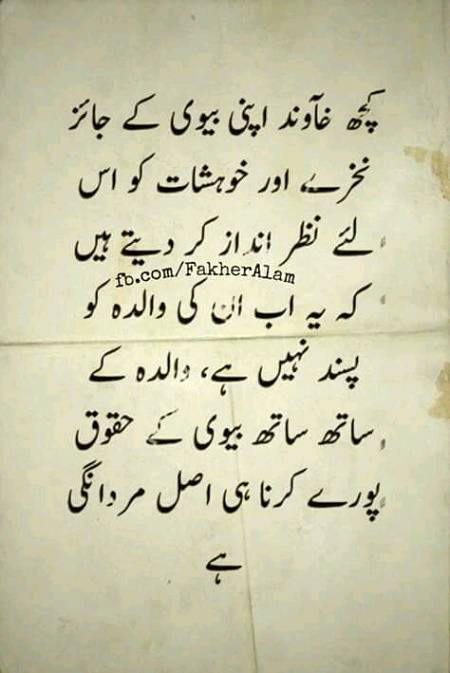 کچھ خآوند اپنی بیوی کے جائز
نخرے اور خوہشات کو اس
لئے نظر انداز کر دیتے ہیں
fb.com/FakherAlam
کہ یہ اب ان کی والدہ کو
پسند نہیں ہے، والدہ کے
ساتھ ساتھ بیوی کے حقوق
پورے کرنا ہی اصل مردانگی
ہے